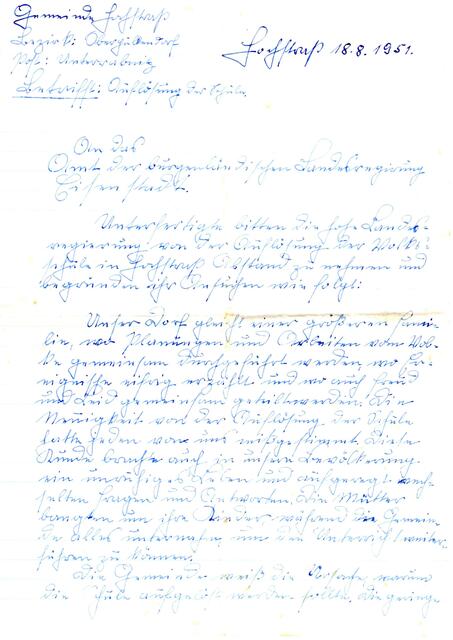 Gemeinde Hochstraß
Bezirk: Oberpullendorf
Post: Unterrabnitz
Betrifft: Auflösung der Schule.
Hochstraß 18.8.1951.
An das
Amt der burgenländischen Landesregierung
Eisenstadt.
Unterfertigte bitten die hohe Landes-
regierung von der Auflösung der Volks-
schule in Hochstraß Abstand zu nehmen und
begründen ihr Ansuchen wie folgt:
Unser Dorf gleicht einer größeren Fami-
lie, wo Planungen und Arbeiten vom Vol-
ke gemeinsam durchgeführt werden, wo Er-
eignisse eifrig erzählt und wo auch Freud
und Leid gemeinsam geteilt werden. Die
Neuigkeit von der Auflösung der Schule
hatte jeden von uns mißgestimmt. Diese
Kunde brachte auch in unsere Bevölkerung
ein unruhiges Leben und aufgeregt wech-
selten Fragen und Antworten. Die Mütter
bangten um ihre Kinder während die Gemein-
de alles unternahm, um den Unterricht weiter-
führen zu können.
Die Gemeinde weiß die Ursache, warum
die Schule aufgelöst werden sollte. Die geringe